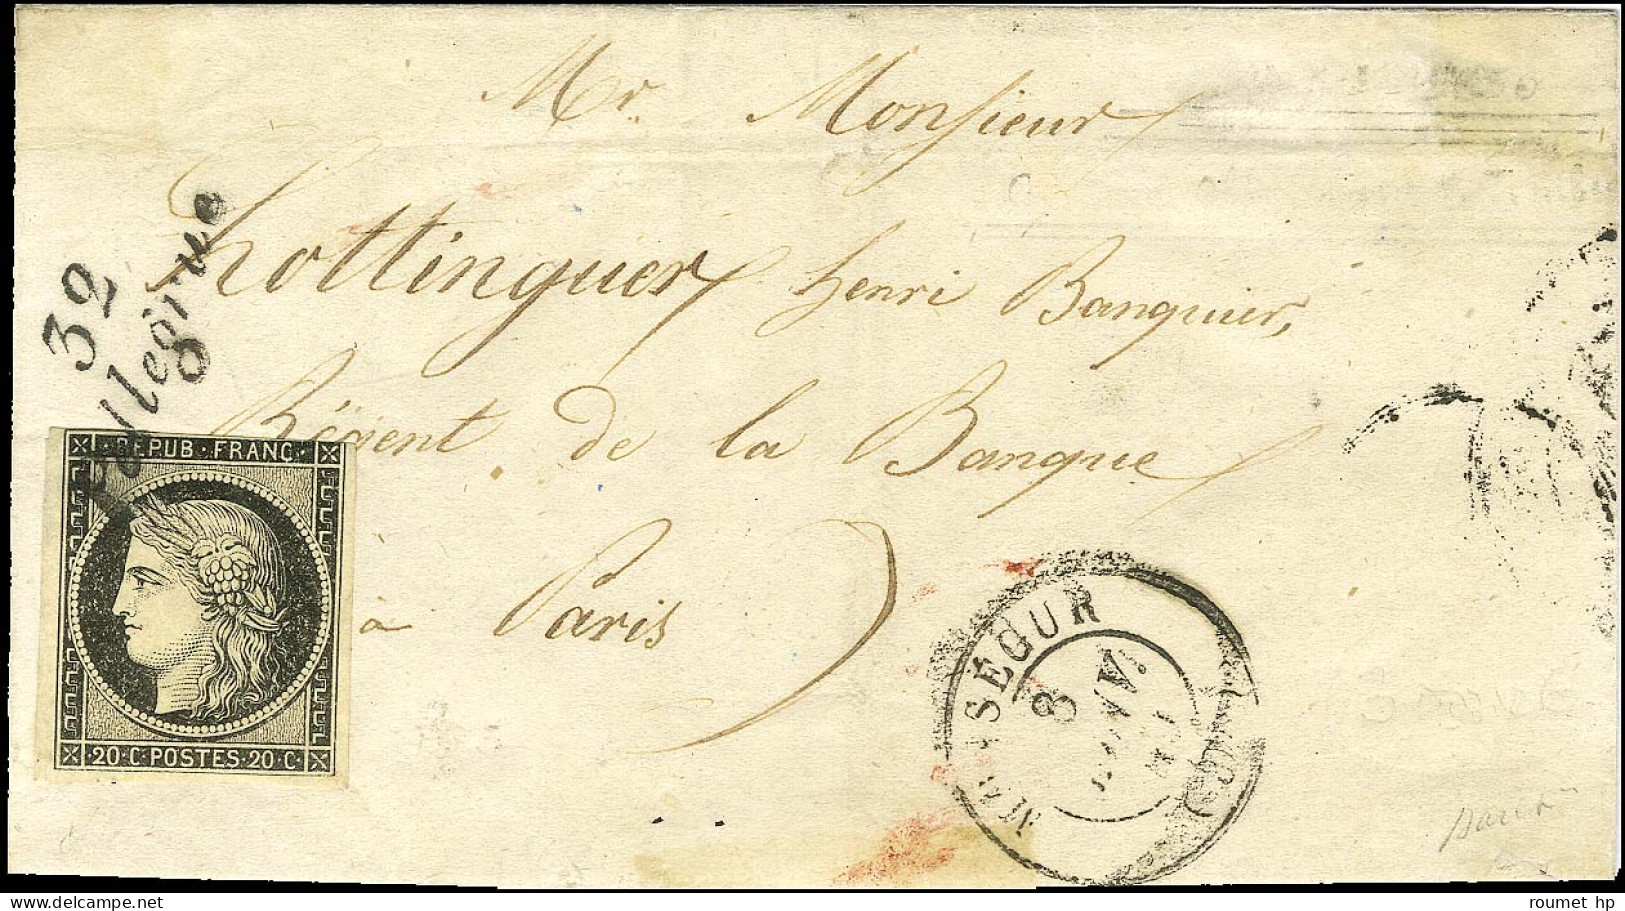 Mr. Monsieur
hottinguer henri Banquier,
Régent de la Banque
à Paris
32
Pellegrue
REPUB·FRANC·
20·C·POSTES·20·C·
MONSÉGUR
8
AVR.
(32)
roumet hp